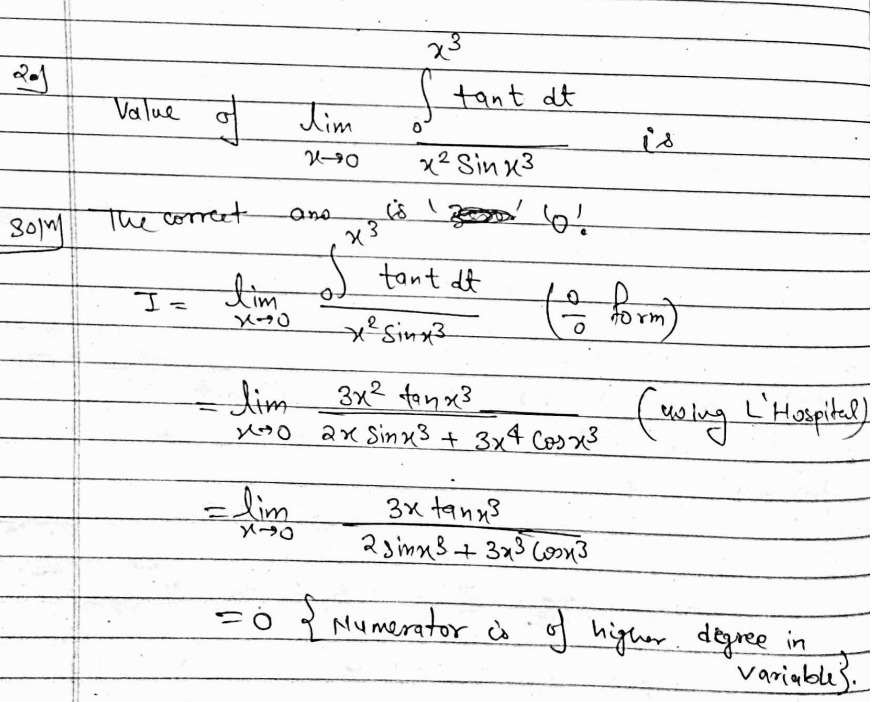 2.)
Value of lim x→0 ∫₀^x³ tant dt / x² Sin x³ is
Soln The correct ans is ' ' '0'.
I = lim x→0 ∫₀^x³ tant dt / x² Sinx³ (0/0 form)
= lim x→0 3x² tanx³ / 2x Sinx³ + 3x⁴ Cosx³ (using L'Hospital)
= lim x→0 3x tanx³ / 2sinx³ + 3x³ Cosx³
= 0 {Numerator is of higher degree in
variable}.